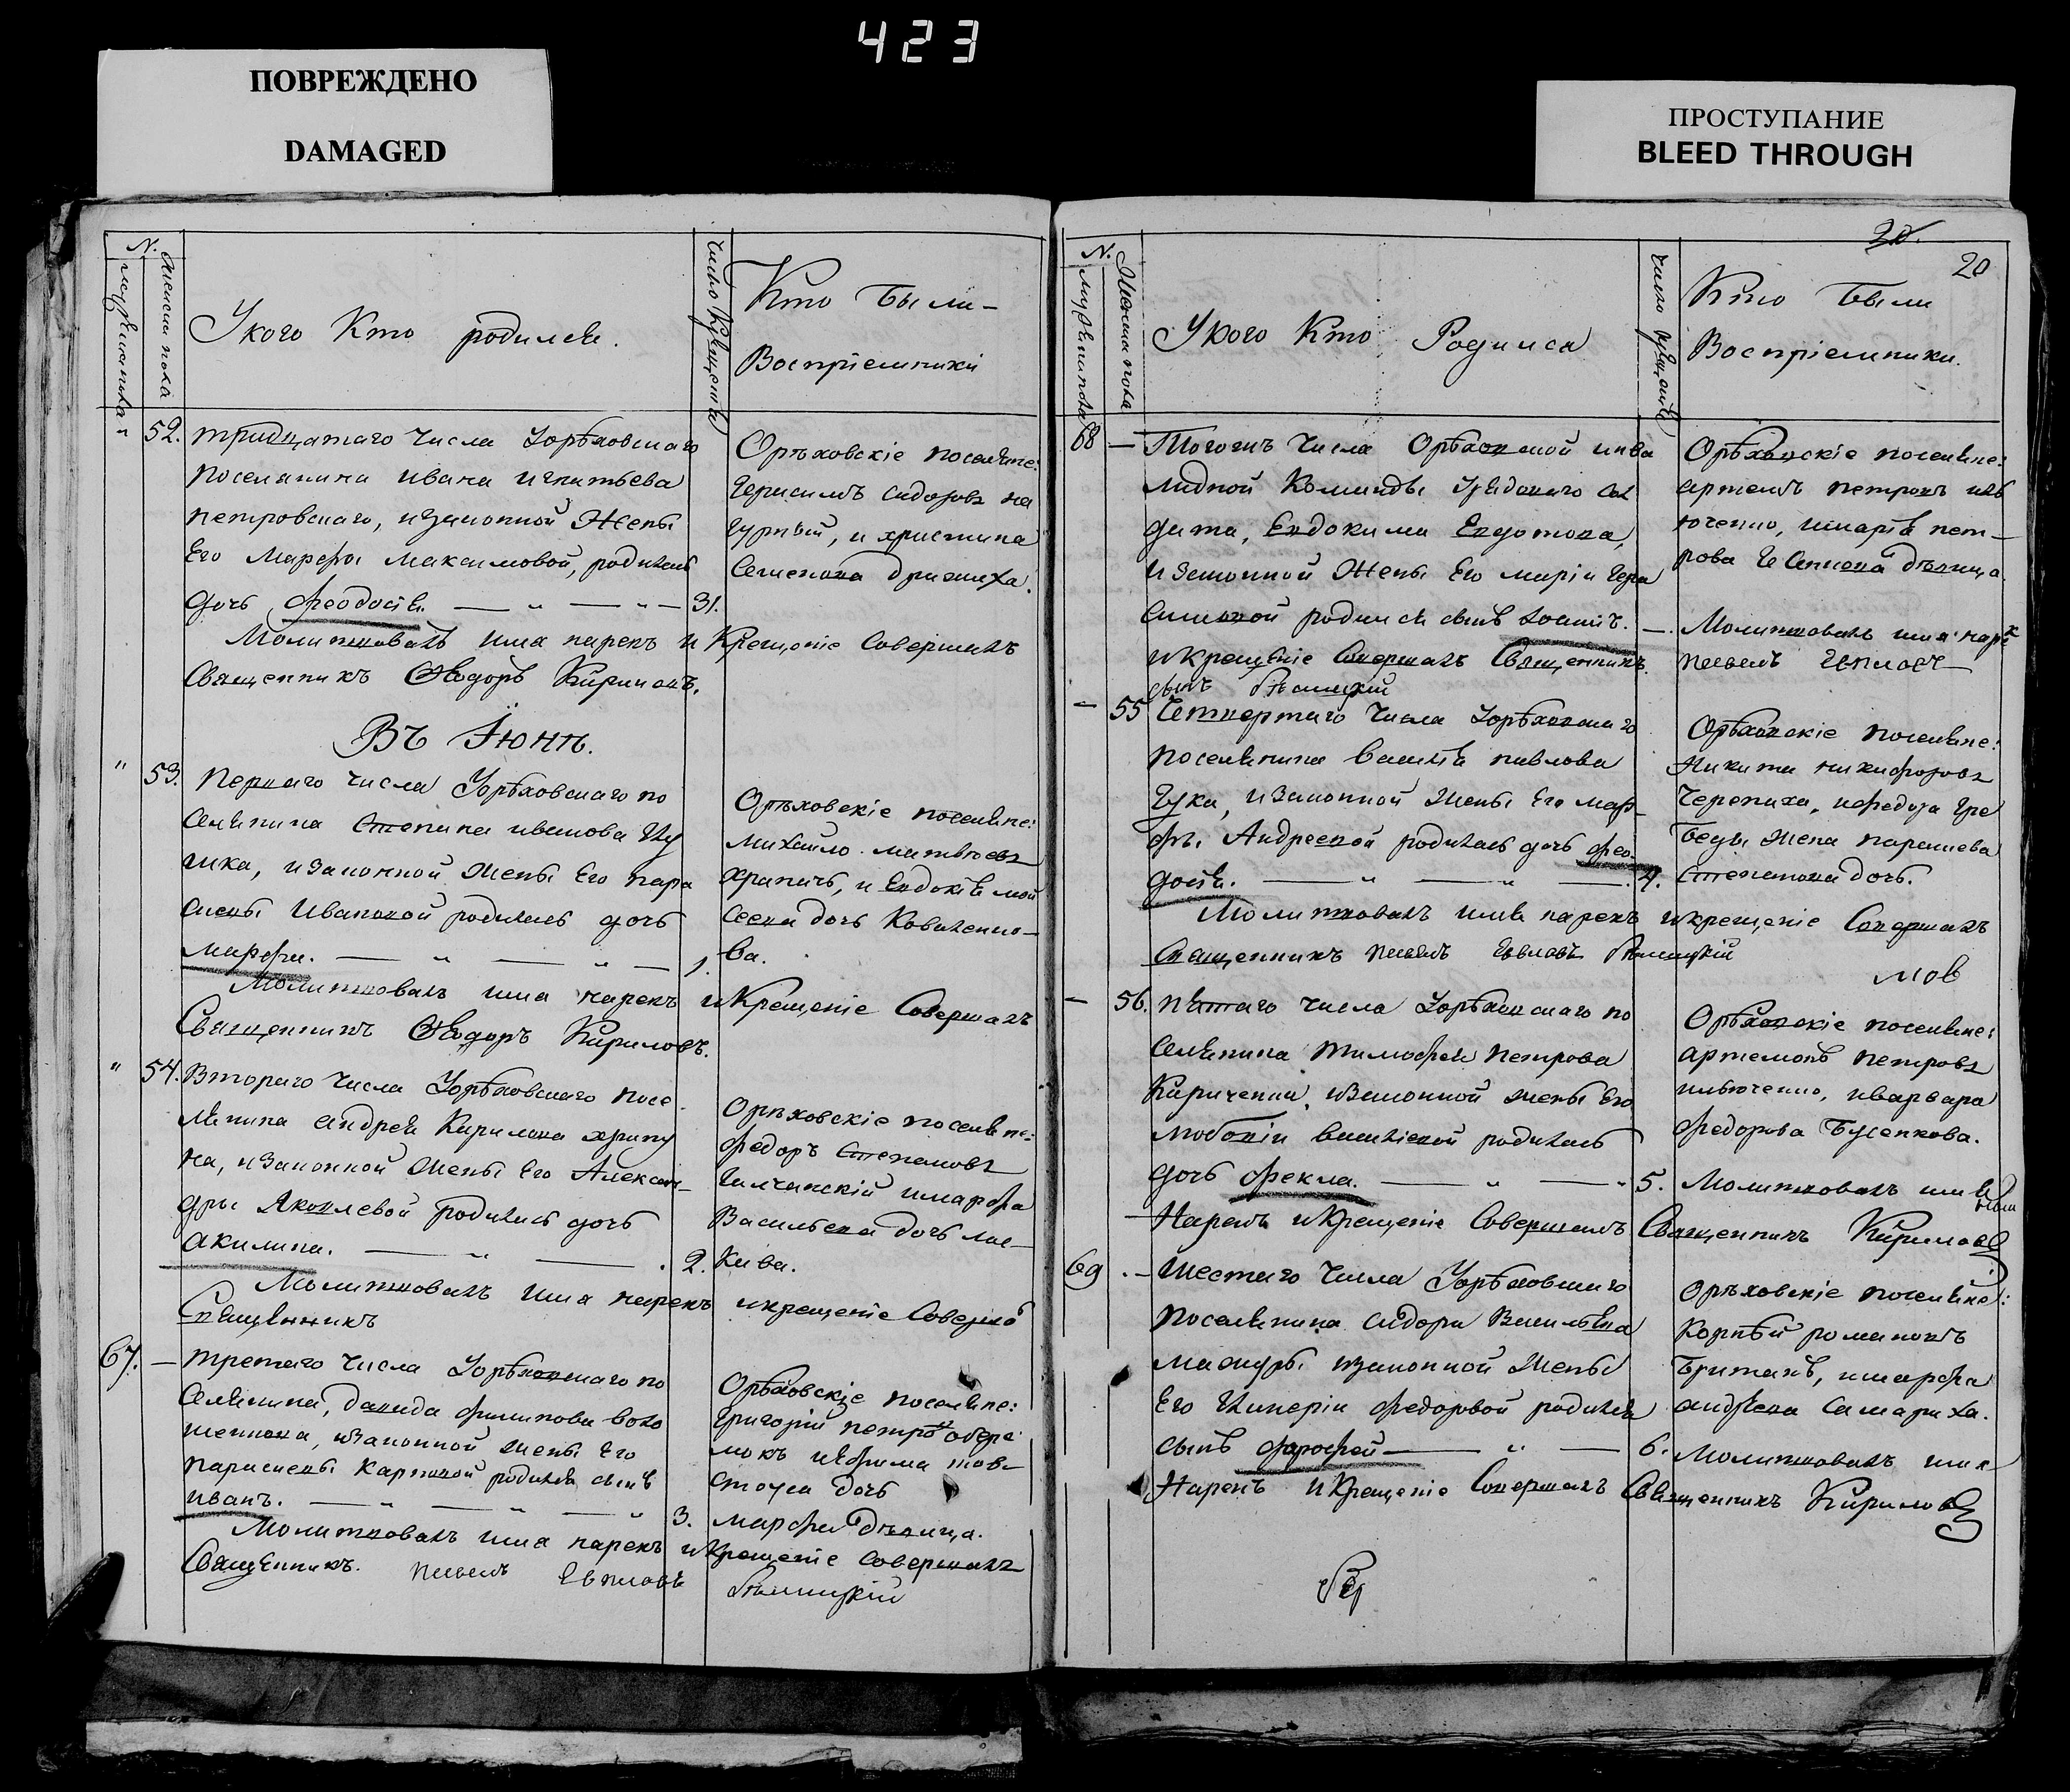 423
ПОВРЕЖДЕНО
DAMAGED
ПРОСТУПАНИЕ
BLEED THROUGH
N.
мужеска пола
женска пола
Укого Кто родился.
число Крещенія
Кто Были
Воспріемники
" 52. тридцатаго числа Уорѣховскаго
поселянина ивана игнатьева
петровскаго, изаконной Жены
Его Марфы максимовой, родилась
дочь феодосія. — " — " — 31.
Орѣховскіе поселяне:
Герасимъ сидоровъ на
и христина
Семенова
Молитвовалъ имя нарекъ и Крещеніе Совершилъ
Священникъ Ѳеодоръ Кириловъ.
Въ Іюнѣ.
" 53. перваго числа Уорѣховскаго по
селянина Степана иванова
шка, изаконной Жены Его пара
скевы Ивановой родилась дочь
марфа. — " — " — 1.
Орѣховскіе поселяне:
михайло матвѣевъ
храпачь, и Евдокія мой
сеева дочь Коваленко-
ва.
Молитвовалъ имя нарекъ и Крещеніе Совершилъ
Священникъ Ѳеодоръ Кириловъ.
" 54. Втораго числа Уорѣховскаго посе
лянина андрея Кирилова храпу
на, изаконной Жены Его Алексан-
дры Яковлевой родилась дочь
акилина. — " — . 2.
Орѣховскіе поселяне:
федоръ Степановъ
имарфа
Васильева дочь лис-
Кива.
Молитвовалъ имя нарекъ икрещеніе Соверши
Священникъ
67. — третаго числа Уорѣховскаго по
селянина, давида филипова воло
шенкова, изаконной жены Его
параскевы Карповой родился сынъ
иванъ. — " — " — " 3.
Орѣховскіе поселяне:
григорій петровъ обере
мокъ иефима тов-
стоуса дочь
марфа дѣвица.
Молитвовалъ имя нарекъ и Крещеніе совершилъ
Священникъ. павелъ Евпловъ Бѣлицкій
20.
20
N.
мужеска пола
Женска пола
Укого Кто Родился
число крещенія
Кто Были
Воспріемники.
68 — Тогожъ числа Орѣховской инва
лидной Команды рядоваго сол
дата, Евдокима Евдотова,
изаконной Жены Его маріи Гера
симовой родился сынъ Іоаннъ. —.
Орѣховскіе поселяне:
артемъ петровъ иль
юченко, имарія пет-
рова дѣвица.
Молитвовалъ имя нарек
икрещеніе Совершилъ Священникъ павелъ Евпловъ
сынъ Бѣлицкій
— 55 Четвертаго числа Уорѣховскаго
поселянина василія павлова
Гука, изаконной Жены Его мар-
фы Андреевой родилась дочь фео-
досія. — " — " — . 4.
Орѣховскіе поселяне:
Никита никифоровъ
Черепаха, ифедора Гре
беды Жена параскева
Степанова дочь.
Молитвовалъ имя нарекъ икрещеніе Совершилъ
Священникъ павелъ Евпловъ Бѣлицкій
мов
— 56. пятаго числа Уорѣховскаго по
селянина тимофея петрова
Кириченка, изаконной жены Его
любовіи василіевой родилась
дочь фекла. — " — " 5.
Орѣховскіе поселяне:
артемонъ петровъ
ильюченко, иварвара
федорова Бусенкова.
Молитвовалъ имя
Нарекъ икрещеніе Совершилъ Священникъ Кириловъ
69 . — шестаго числа Уорѣховскаго
поселянина сидора Васильева
мажуры изаконной Жены
Его Гликеріи федоровой родился
сынъ дорофей — " — 6.
Орѣховскіе поселяне:
Корнѣй романовъ
Британъ, имарфа
андреева самариха.
Молитвовалъ имя
Нарекъ и Крещеніе Совершилъ Священникъ Кириловъ